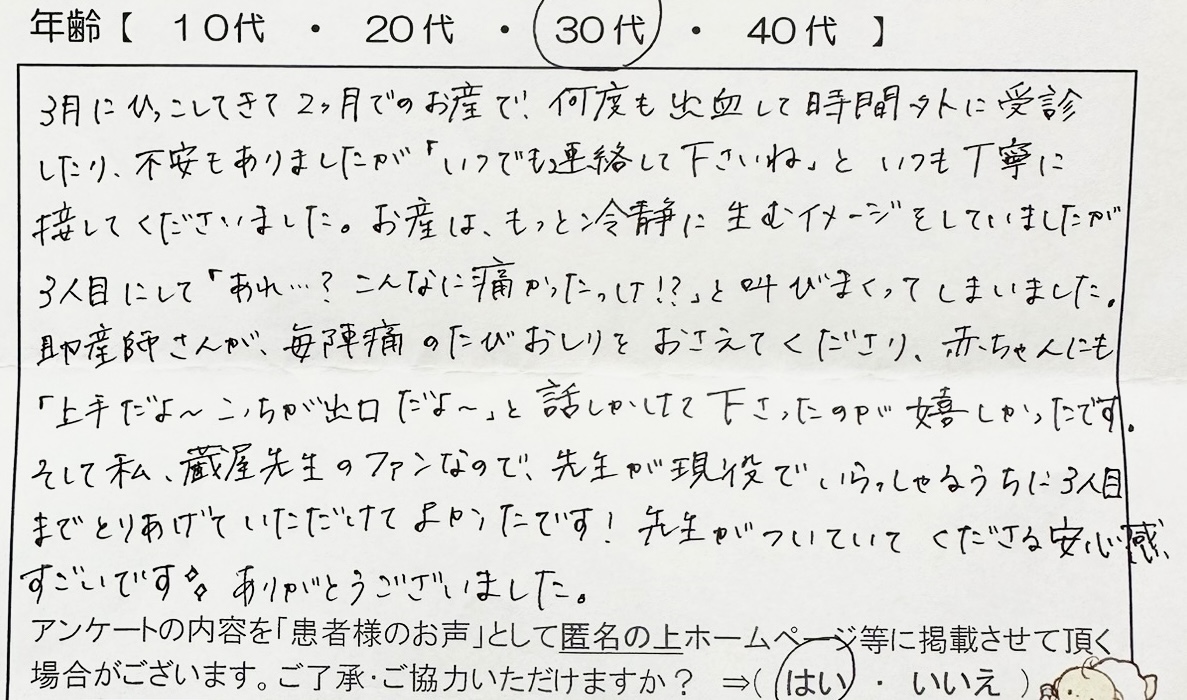 年齢【 10代 ・ 20代 ・ 30代 ・ 40代 】
3月にひっこしてきて2ヶ月でのお産で、何度も出血して時間外に受診
したり、不安もありましたが「いつでも連絡して下さいね」と いつも丁寧に
接してくださいました。お産は、もっと冷静に生むイメージをしていましたが
3人目にして「あれ…?こんなに痛かったっけ!?」と叫びまくってしまいました。
助産師さんが、毎陣痛のたびおしりをおさえてくださり、赤ちゃんにも
「上手だよ〜こっちが出口だよ〜」と話しかけて下さったのが嬉しかったです。
そして私、蔵屋先生のファンなので、先生が現役でいらっしゃるうちに3人目
までとりあげていただけてよかったです! 先生がついていてくださる安心感、
すごいです✧ ありがとうございました。
アンケートの内容を「患者様のお声」として匿名の上ホームページ等に掲載させて頂く
場合がございます。ご了承・ご協力いただけますか? ⇒( はい ・ いいえ )